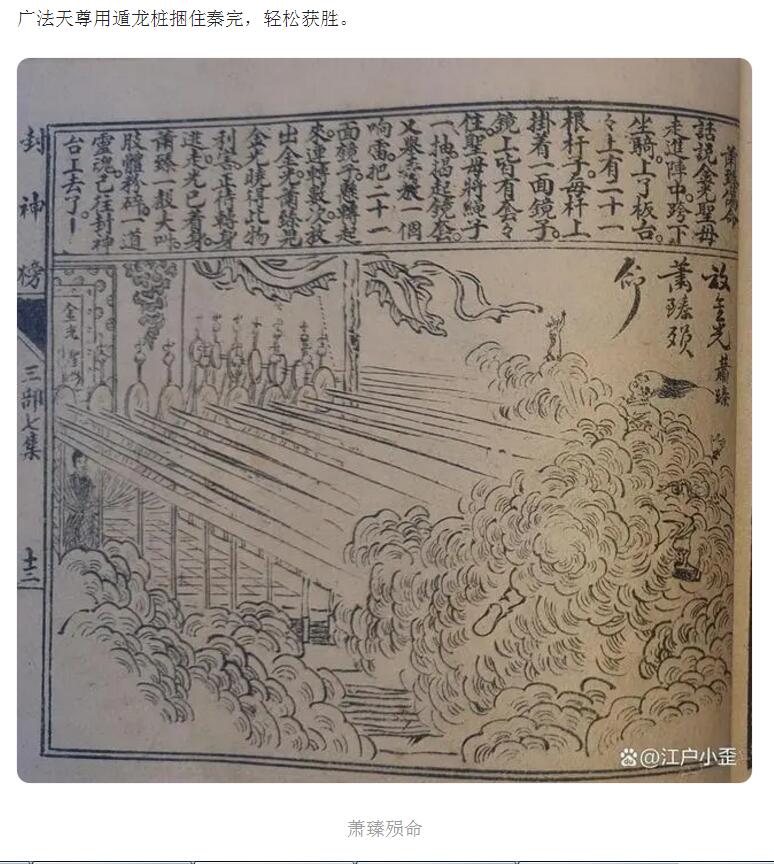 广法天尊用遁龙桩捆住秦完，轻松获胜。
蕭臻殞命
話說金光聖母
走進陣中。跨下
坐騎上了板台。
々上有二十一
根杆子。每杆上
掛着一面鏡子
鏡上皆有套々
住。聖母將繩子
一抽。揭起鏡套。
又舉手發一個
响雷把二十一
面鏡子。懸轉起
來。連轉數次。放
出金光。蕭臻見
金光曉得此物
利害。正待轉身
逃走。光已着身。
蕭臻一聲大叫
肢體粉碎。一道
靈魂已往封神
台上去了
放金光
蕭臻殞
命
蕭臻
金光聖
封神榜
三部七集
十三
@江户小歪
萧臻殒命